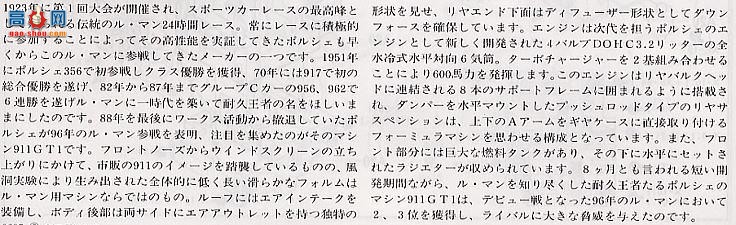 1923年に第1回大会が開催され、スポーツカーレースの最高峰と
る伝統のル・マン24時間レース。常にレースに積極的
に参加することによってその高性能を実証してきたポルシェも早
くからこのル・マンに参戦してきたメーカーの一つです。1951年
にポルシェ356で初参戦しクラス優勝を獲得、70年には917で初の
総合優勝を遂げ、82年から87年までグループCカーの956、962で
6連勝を遂げル・マンに一時代を築いて耐久王者の名をほしいま
まにしたのです。88年を最後にワークス活動から撤退していたポ
ルシェが96年のル・マン参戦を表明、注目を集めたのがそのマシ
ン911GT1です。フロントノーズからウインドスクリーンの立ち
上がりにかけて、市販の911のイメージを踏襲しているものの、風
洞実験により生み出された全体的に低く長い滑らかなフォルムは
ル・マン用マシンならではのもの。ルーフにはエアインテークを
装備し、ボディ後部は両サイドにエアアウトレットを持つ独特の
形状を見せ、リヤエンド下面はディフューザー形状としてダウン
フォースを確保しています。エンジンは次代を担うポルシェのエ
ンジンとして新しく開発された4バルブDOHC3.2リッターの全
水冷式水平対向6気筒。ターボチャージャーを2基組み合わせる
ことにより600馬力を発揮します。このエンジンはリヤバルクヘッ
ドに連結される8本のサポートフレームに囲まれるように搭載さ
れ、ダンパーを水平マウントしたプッシュロッドタイプのリヤサ
スペンションは、上下のAアームをギヤケースに直接取り付ける
フォーミュラマシンを思わせる構成となっています。また、フロ
ント部分には巨大な燃料タンクがあり、その下に水平にセットさ
れたラジエターが収められています。8ヶ月とも言われる短い開
発期間ながら、ル・マンを知り尽くした耐久王者たるポルシェの
マシン911GT1は、デビュー戦となった96年のル・マンにおいて
2、3位を獲得し、ライバルに大きな脅威を与えたのです。